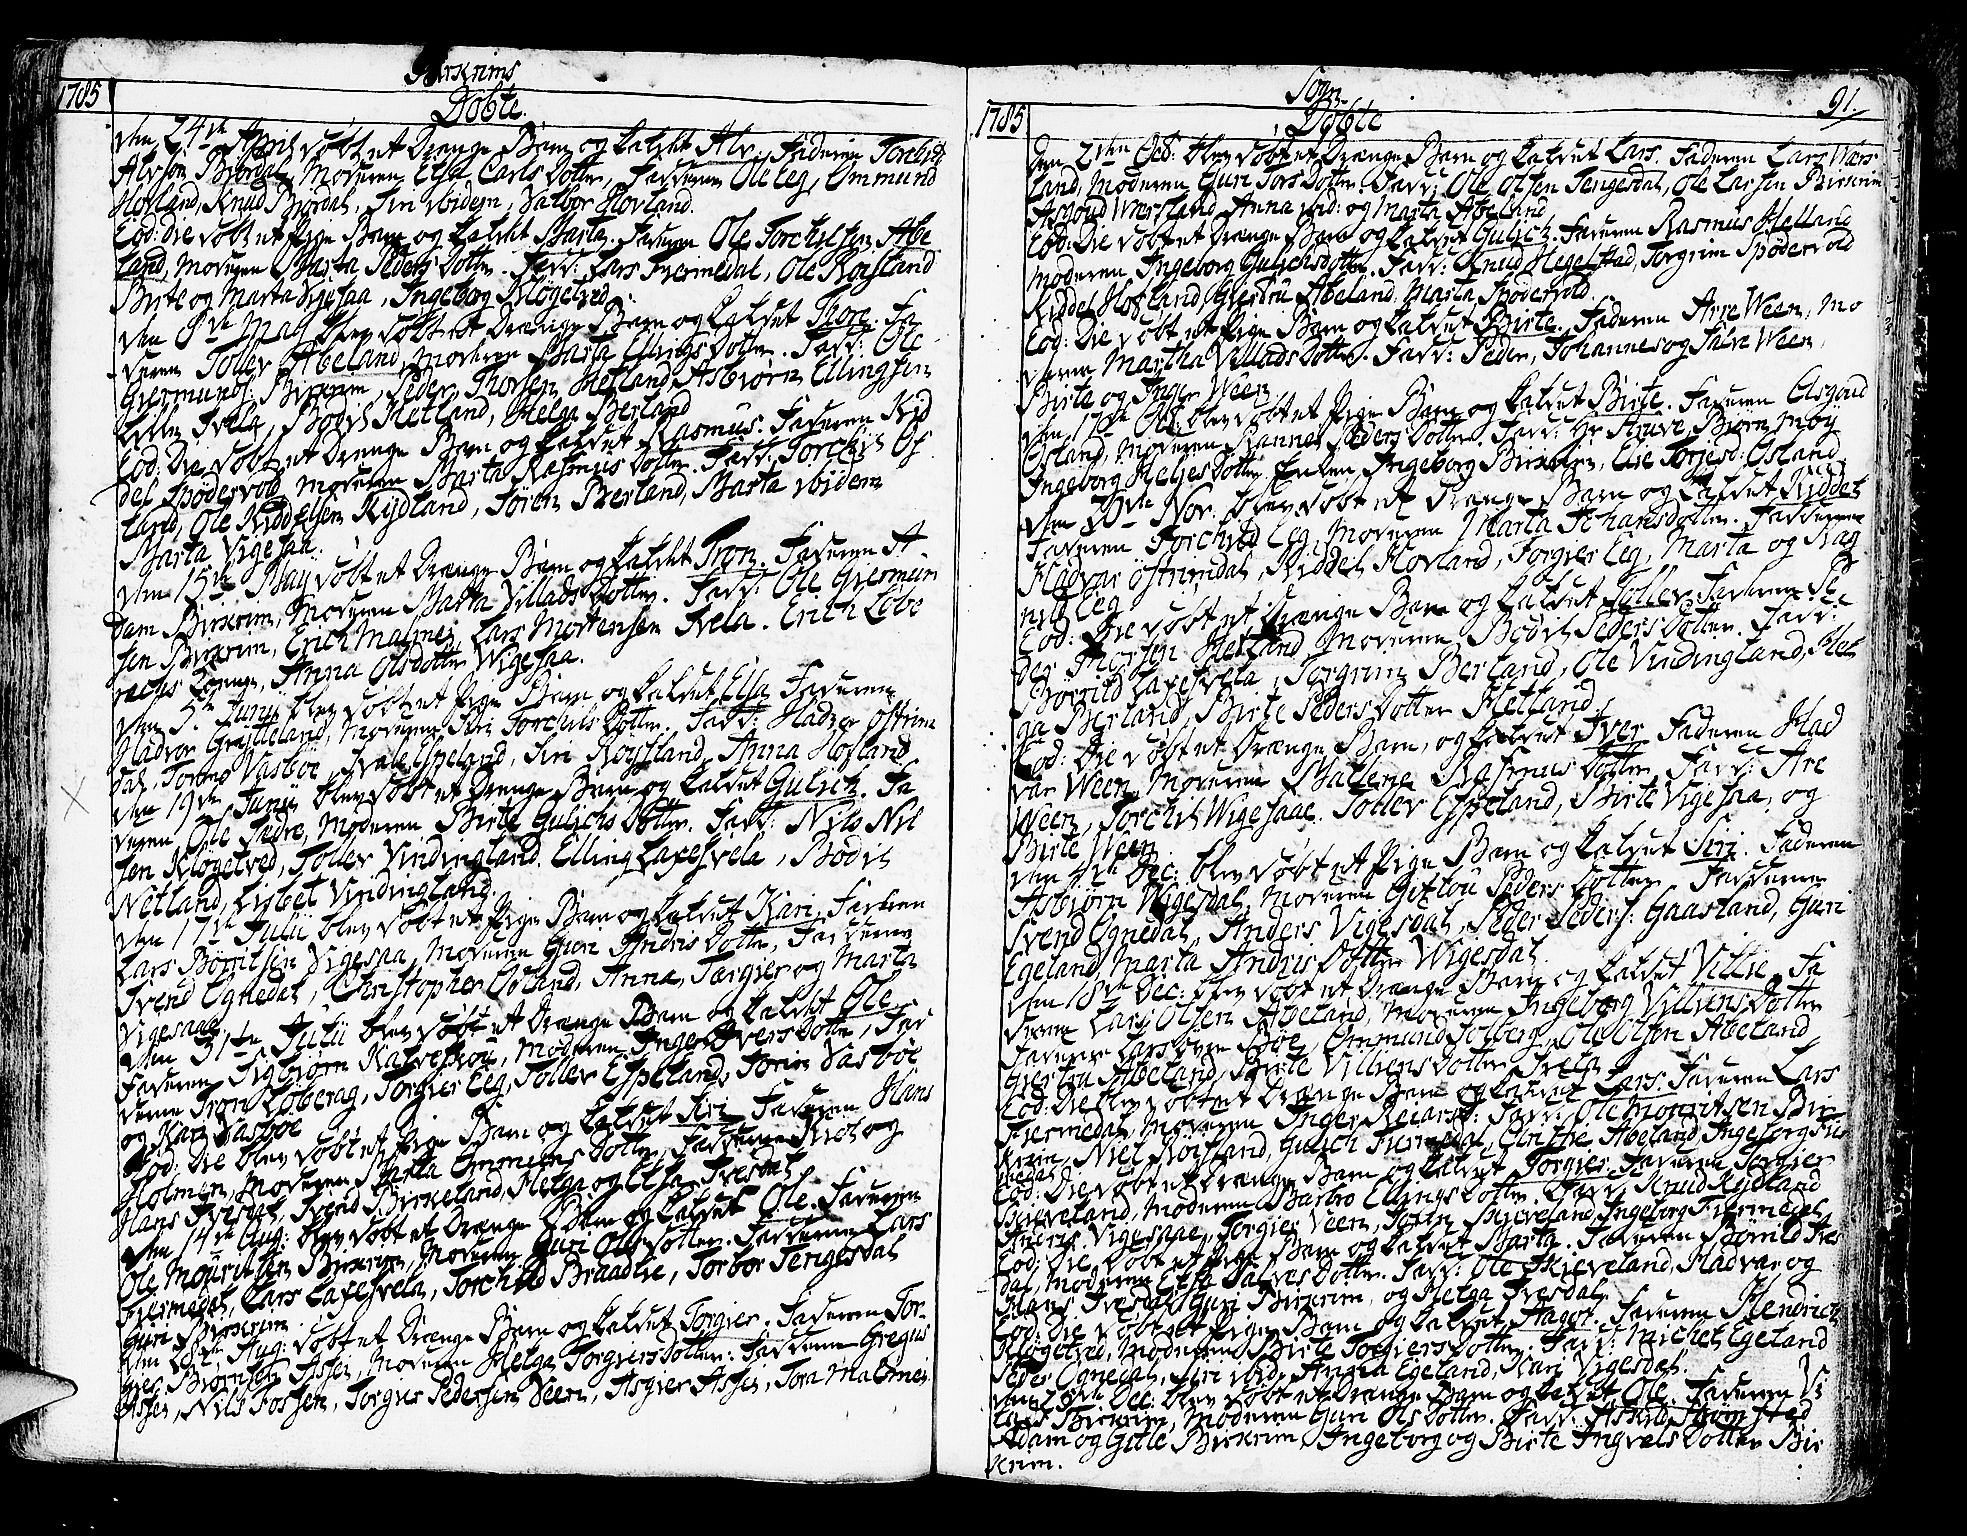 Birkrims
1785
Døbte.
den 24de April døbt et Drænge Barn og kaldt Alv. Faderen Torbiør
Alvsøn Birdal, Moderen Elsa Carls Dotter, Fadderne Ole Eeg, Ommund
Hovland, Knud Biordal, Siri ibidem, Valbor Hovland.
Eod: Die døbt et Pige Barn og kaldt Marta. Faderen Ole Torchilsen Abe
land, Moderen Marta Peders Dotter. Fadd: Lars Fiermedal, Ole Røysland
Birte og Marta Vigesaa, Ingeborg Kløgetved.
den 8de Maij blev døbt et Drænge Barn og kaldet Thore. Fa
deren Tollev Abeland, Moderen Marta Ellings Dotter. Fadd: Ole
Giermunds: Birkrim, Peder Thorsen Hetland, Asbiørn Ellingsen
Lille Svela, Bodil Netland, Helga Berland
Eod: Die døbt et Drænge Barn og kaldet Rasmus. Faderen Rid
del Spødervold, Moderen Marta Rasmus Dotter. Fadd: Torchil Of
land, Ole Riddelsen Rydland, Søren Berland, Marta ibidem
Marta Vigesaa.
den 15de Maij døbt et Drænge Barn og kaldt Tron. Faderen A-
dam Birkrim, Moderen Marta Villads Dotter. Fadd: Ole Giermun
sen Birkrim, Erich Malmei, Lars Mortensen Svela. Erich Lobe
Anna Olsdotter Wigesaa.
den 5te Junij blev døbt et Pige Barn og kaldet Elsa Faderen
Hadvor Grytteland, Moderen Siri Torchils Dotter. Fadd: Hadvor Østrim
dal, Tørres Vasbøe, Svale Espeland, Siri Røysland, Anna Hofland
den 19de Junij blev døbt et Drænge Barn og kaldet Gulich. Fa
deren Ole Sædre, Moderen Birte Gulichs Dotter. Fadd: Nils Nil
sen Kløgetved, Tollev Vindingland. Elling Laxesvela, Bodil
Netland, Lisbet Vindingland.
den 17de Julii blev døbt et Pige Barn og kaldet Kari. Faderen
Lars Børrilsen Vigesaa, Moderen Guri Andris Dotter, Fadderne
Svend Ognedal, Christopher Odland, Anna, Tærgier og Marta
Vigesaa.
den 31te Julii blev døbt et Drænge Barn og kaldet Ole
Faderen Sigbiørn Kalveskou, Moderen Inger Ivers Dotter, Fad
derne Tron Løberag, Torgier Eeg, Tollev Espeland, Torin Vasbøe
og Kari Vasbøe
Eod: Die blev døbt et Pige Barn og kaldet Siri. Faderen Hans
Holmen, Moderen Marta Ommuns Dotter, Fadderne Niel og
Hans Ivesdal, Svend Birkeland, Helga og Elsa Ivesdal.
den 14de Aug: blev døbt et Drænge Barn og kaldet Ole. Faderen
Ole Mouritsen Birkrim, Moderen Guri Ols Dotter. Fadderne Lars
Fiermedal, Lars Laxesvela, Torchild Braadlie, Torbor Tengesdal
Guri Birkrim.
den 28de Aug: døbt et Drænge Barn og kaldet Torgier. Faderen Tor-
gier Biørnsen Assen, Moderen Helga Torgiers Dotter. Fadderne Gregus
Assen, Nils Fossen, Torgier Pedersen Veen, Asgier Assen, Tora Malmei
Sogn
1785
Døbte
91.
den 2den Octb: blev døbt et Drænge Barn og kaldet Lars. Faderen Lars Wærs
land, Moderen Guri Tors Dotter. Fadd: Ole Olsen Tengesdal, Ole Larsen Birkrim
Asgoud Wærsland, Anna ibid: og Marta Abeland.
Eod: Die døbt et Drænge Barn og kaldet Gulich. Faderen Rasmus Hofland
Moderen Ingeborg Gulichsdotter. Fadd: Knud Hegelstad, Torgrim Spødervold
Riddel Hofland, Giertru Abeland, Marta Spødervold.
Eod: Die døbt et Pige Barn og kaldet Birte. Faderen Are Ween, Mo
deren Martha Villads Dotter. Fadd: Peder, Johannes og Salve Ween,
Birte og Inger Ween
den 17de Octb: blev døbt et Pige Barn og kaldet Birte. Faderen Asgoud
Osland, Moderen Ranne Peders Dotter. Fadd: Hr Biørn Møy
Ingeborg Helges Dotter, Enken Ingeborg Birkrim, Else Torjesd: Osland
den 20de Nov: blev døbt et Drænge Barn og kaldet Riddel
Faderen Torchild Eeg, Moderen Marta Johansdotter. Fadderne
Hadvar Østrimdal, Riddel Hovland, Torgier Eeg, Marta og Rag
nild Eeg
Eod: Die døbt et Drænge Barn og kaldet Tollev. Faderen Pe
der Thorsen Hetland Moderen Bodil Peders Dotter. Fadd:
Børrild Laxesvela, Torgrim Berland, Ole Vindingland, Hel
ga Berland, Birte Peders Dotter Hetland.
Eod: Die døbt et Drænge Barn, og kaldet Iver. Faderen Had
var Ween, Moderen Mallene Rasmus Dotter, Fadd: Are
Ween, Torchil Wigesaae. Tollev Espeland, Birte Vigesaa, og
Birte Ween.
den 4de Dec: blev døbt et Pige Barn og kaldet Siri. Faderen
Asbiørn Wigesdal, Moderen Giertou Peders Dotter Fadderne
Svend Ognedal, Anders Vigesdal, Peder Peders: Gaasland, Guri
Egeland, Marta Andris Dotter Wigesdal.
den 18de Dec: blev døbt et Drænge Barn og kaldet Villie. Fa
deren Lars Olsen Abeland, Moderen Ingeborg Villiens Dotter
Fadderne Lars Bøe, Ommund Solberg, Ole Olsen Abeland
Giertou Abeland, Birte Villiens Dotter Svela.
Eod: Die blev døbt et Drænge Barn og kaldet Lars. Faderen Lars
Fiermedal, Moderen Inger Reiersd: Fadd: Ole Mouritsen Bir
krim, Niel Røisland, Gulich Fiermedal, Cirstie Abeland, Ingeborg Fier
medal
Eod: Die døbt et Drænge Barn og kaldet Torgier. Faderen Torgier
Skieveland, Moderen Barbro Ellings Dotter. Fadd: Knud Rydland
Andris Vigesaae, Torgier Veen, Torin Skieveland, Ingeborg Fiermedal,
Eod: Die døbt et Pige Barn og kaldet Marta. Faderen Børrild Ives
dal, Moderen Elsa Salves Dotter. Fadd: Ole Skieveland, Hadvar og
Hans Ivesdal, Guri Birkrim, og Helga Ivesdal.
Eod: Die døbt et Pige Barn og kaldet Aagot. Faderen Hendrich
Kløgetved, Moderen Birte Torgiers Dotter. Fadd: Michel Egeland
Peder Ognedal, Siri ibid, Anna Egeland, Kari Vigesdal.
den 26de Dec: blev døbt et Drænge Barn og kaldet Ole. Faderen Vi
Lars Birkrim, Moderen Guri Ols Dotter. Fadd: Askild Strømsted
Adam og Gitle Birkrim, Ingeborg og Birte Ingvals Dotter Bir
krim.